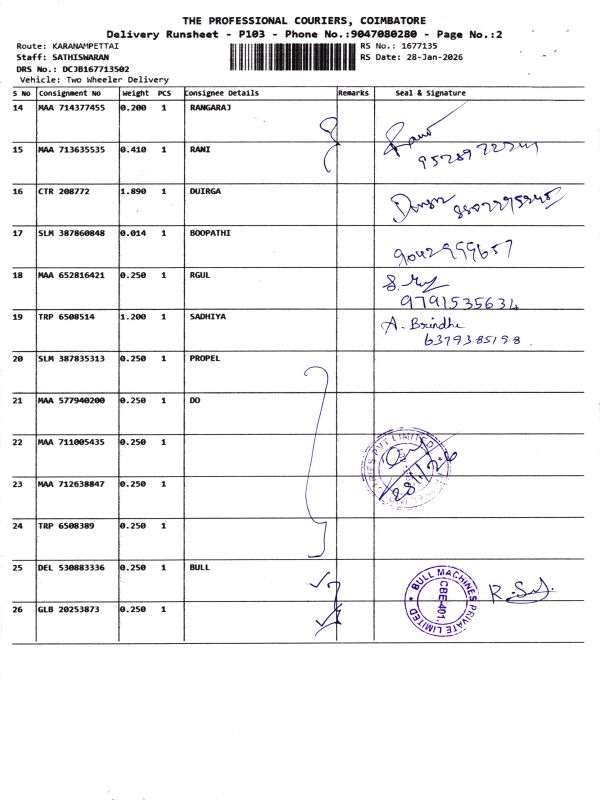 THE PROFESSIONAL COURIERS, COIMBATORE
Delivery Runsheet - P103 - Phone No.:9047080280 - Page No.:2
Route: KARANAMPETTAI RS No.: 1677135
Staff: SATHISWARAN RS Date: 28-Jan-2026
DRS No.: DCJB167713502
Vehicle: Two Wheeler Delivery
S No Consignment No Weight PCS Consignee Details Remarks Seal & Signature
14 MAA 714377455 0.200 1 RANGARAJ
15 MAA 713635535 0.410 1 RANI
16 CTR 208772 1.890 1 DUIRGA
17 SLM 387860848 0.014 1 BOOPATHI
9042999657
18 MAA 652816421 0.250 1 RGUL
9791535634
19 TRP 6508514 1.200 1 SADHIYA A. Brindhe
6379385198
20 SLM 387835313 0.250 1 PROPEL
21 MAA 577940200 0.250 1 DO
22 MAA 711005435 0.250 1
PVT LIMITED
28/1/26
23 MAA 712638847 0.250 1
24 TRP 6508389 0.250 1
25 DEL 530883336 0.250 1 BULL
BULL MACHINES PRIVATE LIMITED
CBE-401.
26 GLB 20253873 0.250 1